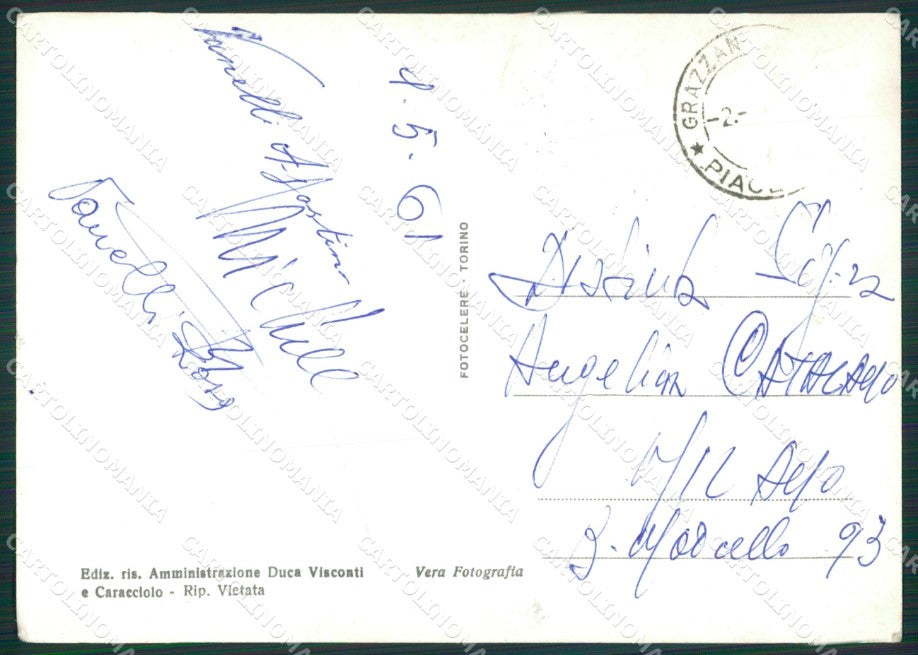 1.5.61
Vanelli Agostino
Michele
Vanelli Rosa
GRAZZAN
-2.-
★ PIAC
FOTOCELERE - TORINO
Distinta Sig.ra
Angelina CATALANO
MILANO
B. Marcello 93
Ediz. ris. Amministrazione Duca Visconti
e Caracciolo - Rip. Vietata
Vera Fotografia
CARTOLINOMANIA